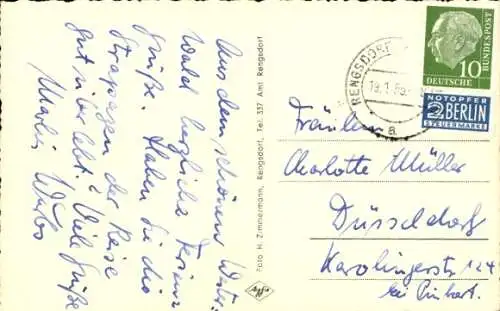 Aus dem schönen Wester-
wald herzliche Ferien-
grüße. Haben Sie die
Strapazen der Reise
gut überlebt. Viele Grüße
Foto H. Zimmermann, Rengsdorf, Tel. 337 Amt Rengsdorf
Agfa
RENGSDORF
a
DEUTSCHE
BUNDESPOST
10
NOTOPFER
2 BERLIN
STEUERMARKE
Fräulein
Charlotte Müller
Düsseldorf
Karolingerstr 124
bei